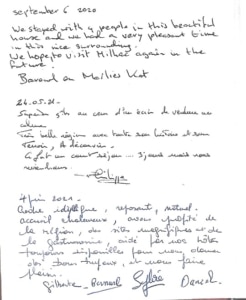 september 6 2020
We stayed with 4 people in this beautiful
house and we had a very pleasant time
in this nice surrounding.
We hope to visit Millac again in the
future.
Barend en Marlies Kat
24.05.21.
Superbe gîte au cœur d'un écrin de verdure au
calme
Très belle région avec toute son histoire et son
Terroir, à découvrir.
Ce fut un court séjour .... 3 jours mais nous
reviendrons.
4 juin 2021.
Cadre idyllique, reposant, naturel.
accueil chaleureux, avons profité de
la région, des sites magnifiques et de
la gastronomie, aidé par nos hôtes
toujours disponibles pour nous donner
des bons tuyaux et nous faire
plaisir.
Gilberte Bernard Sylvie Daniel